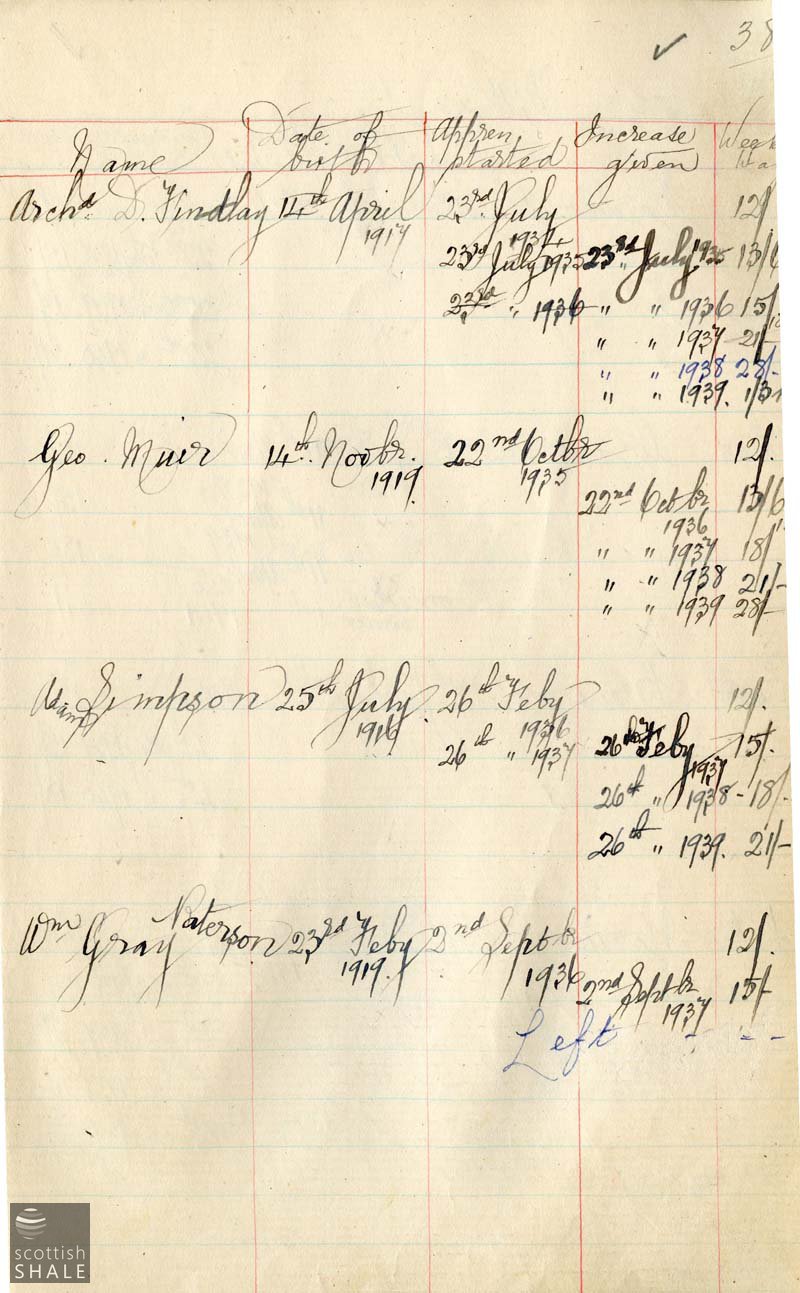 ✓ 38
Name Date of birth Appren started Increase given
Archd. D. Findlay 14th April 1917 23rd. July 1934 12/
23rd July 1935 23rd July 1935 13/6
23rd " 1936 " " 1936 15/
" " 1937 21/-
" " 1938 28/-
" " 1939.
Geo. Muir 14th. Novbr. 1919. 22nd Octbr 1935 12/.
22nd Octbr 1936 13/6
" " 1937 18/
" " 1938 21/-
" " 1939 28/-
Adam Simpson 25th July 1916 26th Feby 1936 12/.
26th " 1937 26th Feby 1937 15/.
26th " 1938 - 18/-
26th " 1939. 21/-
Wm Gray Paterson 23rd Feby 1919. 2nd Septbr 1936 12/.
2nd Septbr 1937 15/-
Left - - -
scottish
SHALE